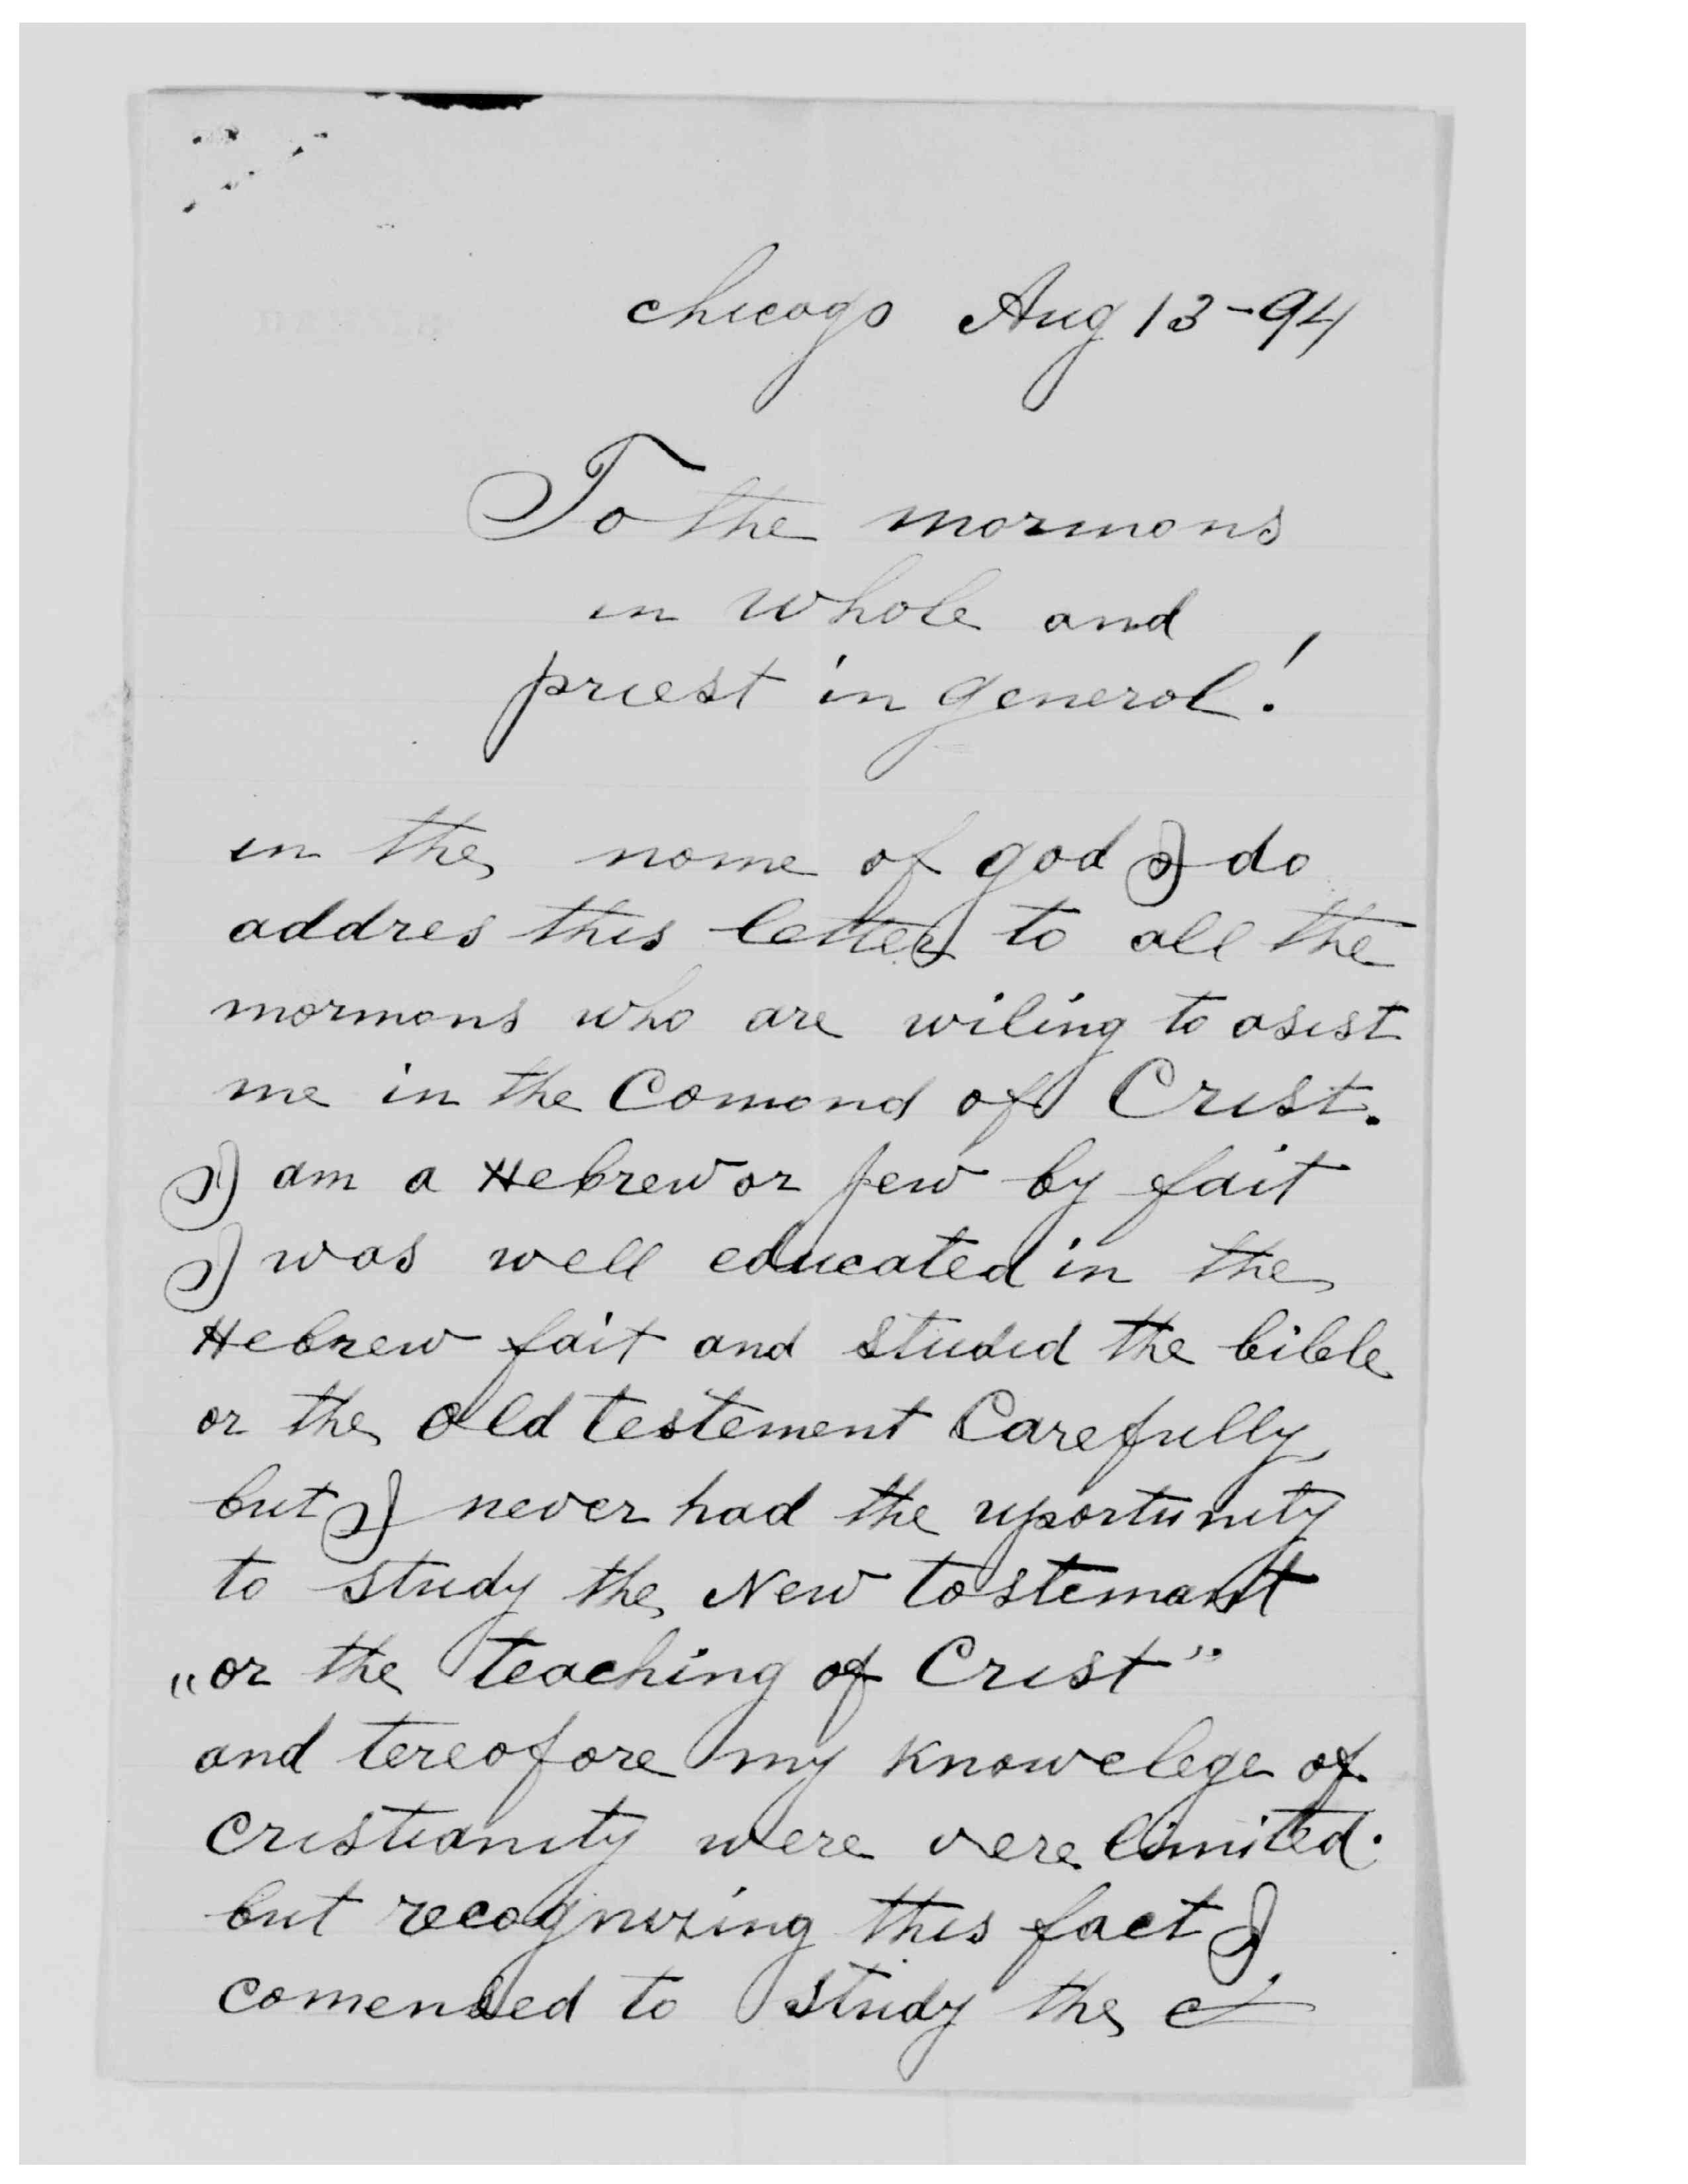 chicago Aug 13-94
To the mormons
in whole and
priest in general!
in the name of god I do
addres this letter to all the
mormons who are wiling to asist
me in the Comand of Crist.
I am a Hebrew or Jew by fait
I was well educated in the
Hebrew fait and studed the bible
or the old testement Carefully,
but I never had the uportunity
to study the New tostemant
„or the teaching of Crist”
and tereofore my knowelege of
cristianity were vere limited.
but recognizing this fact I
comensed to study the